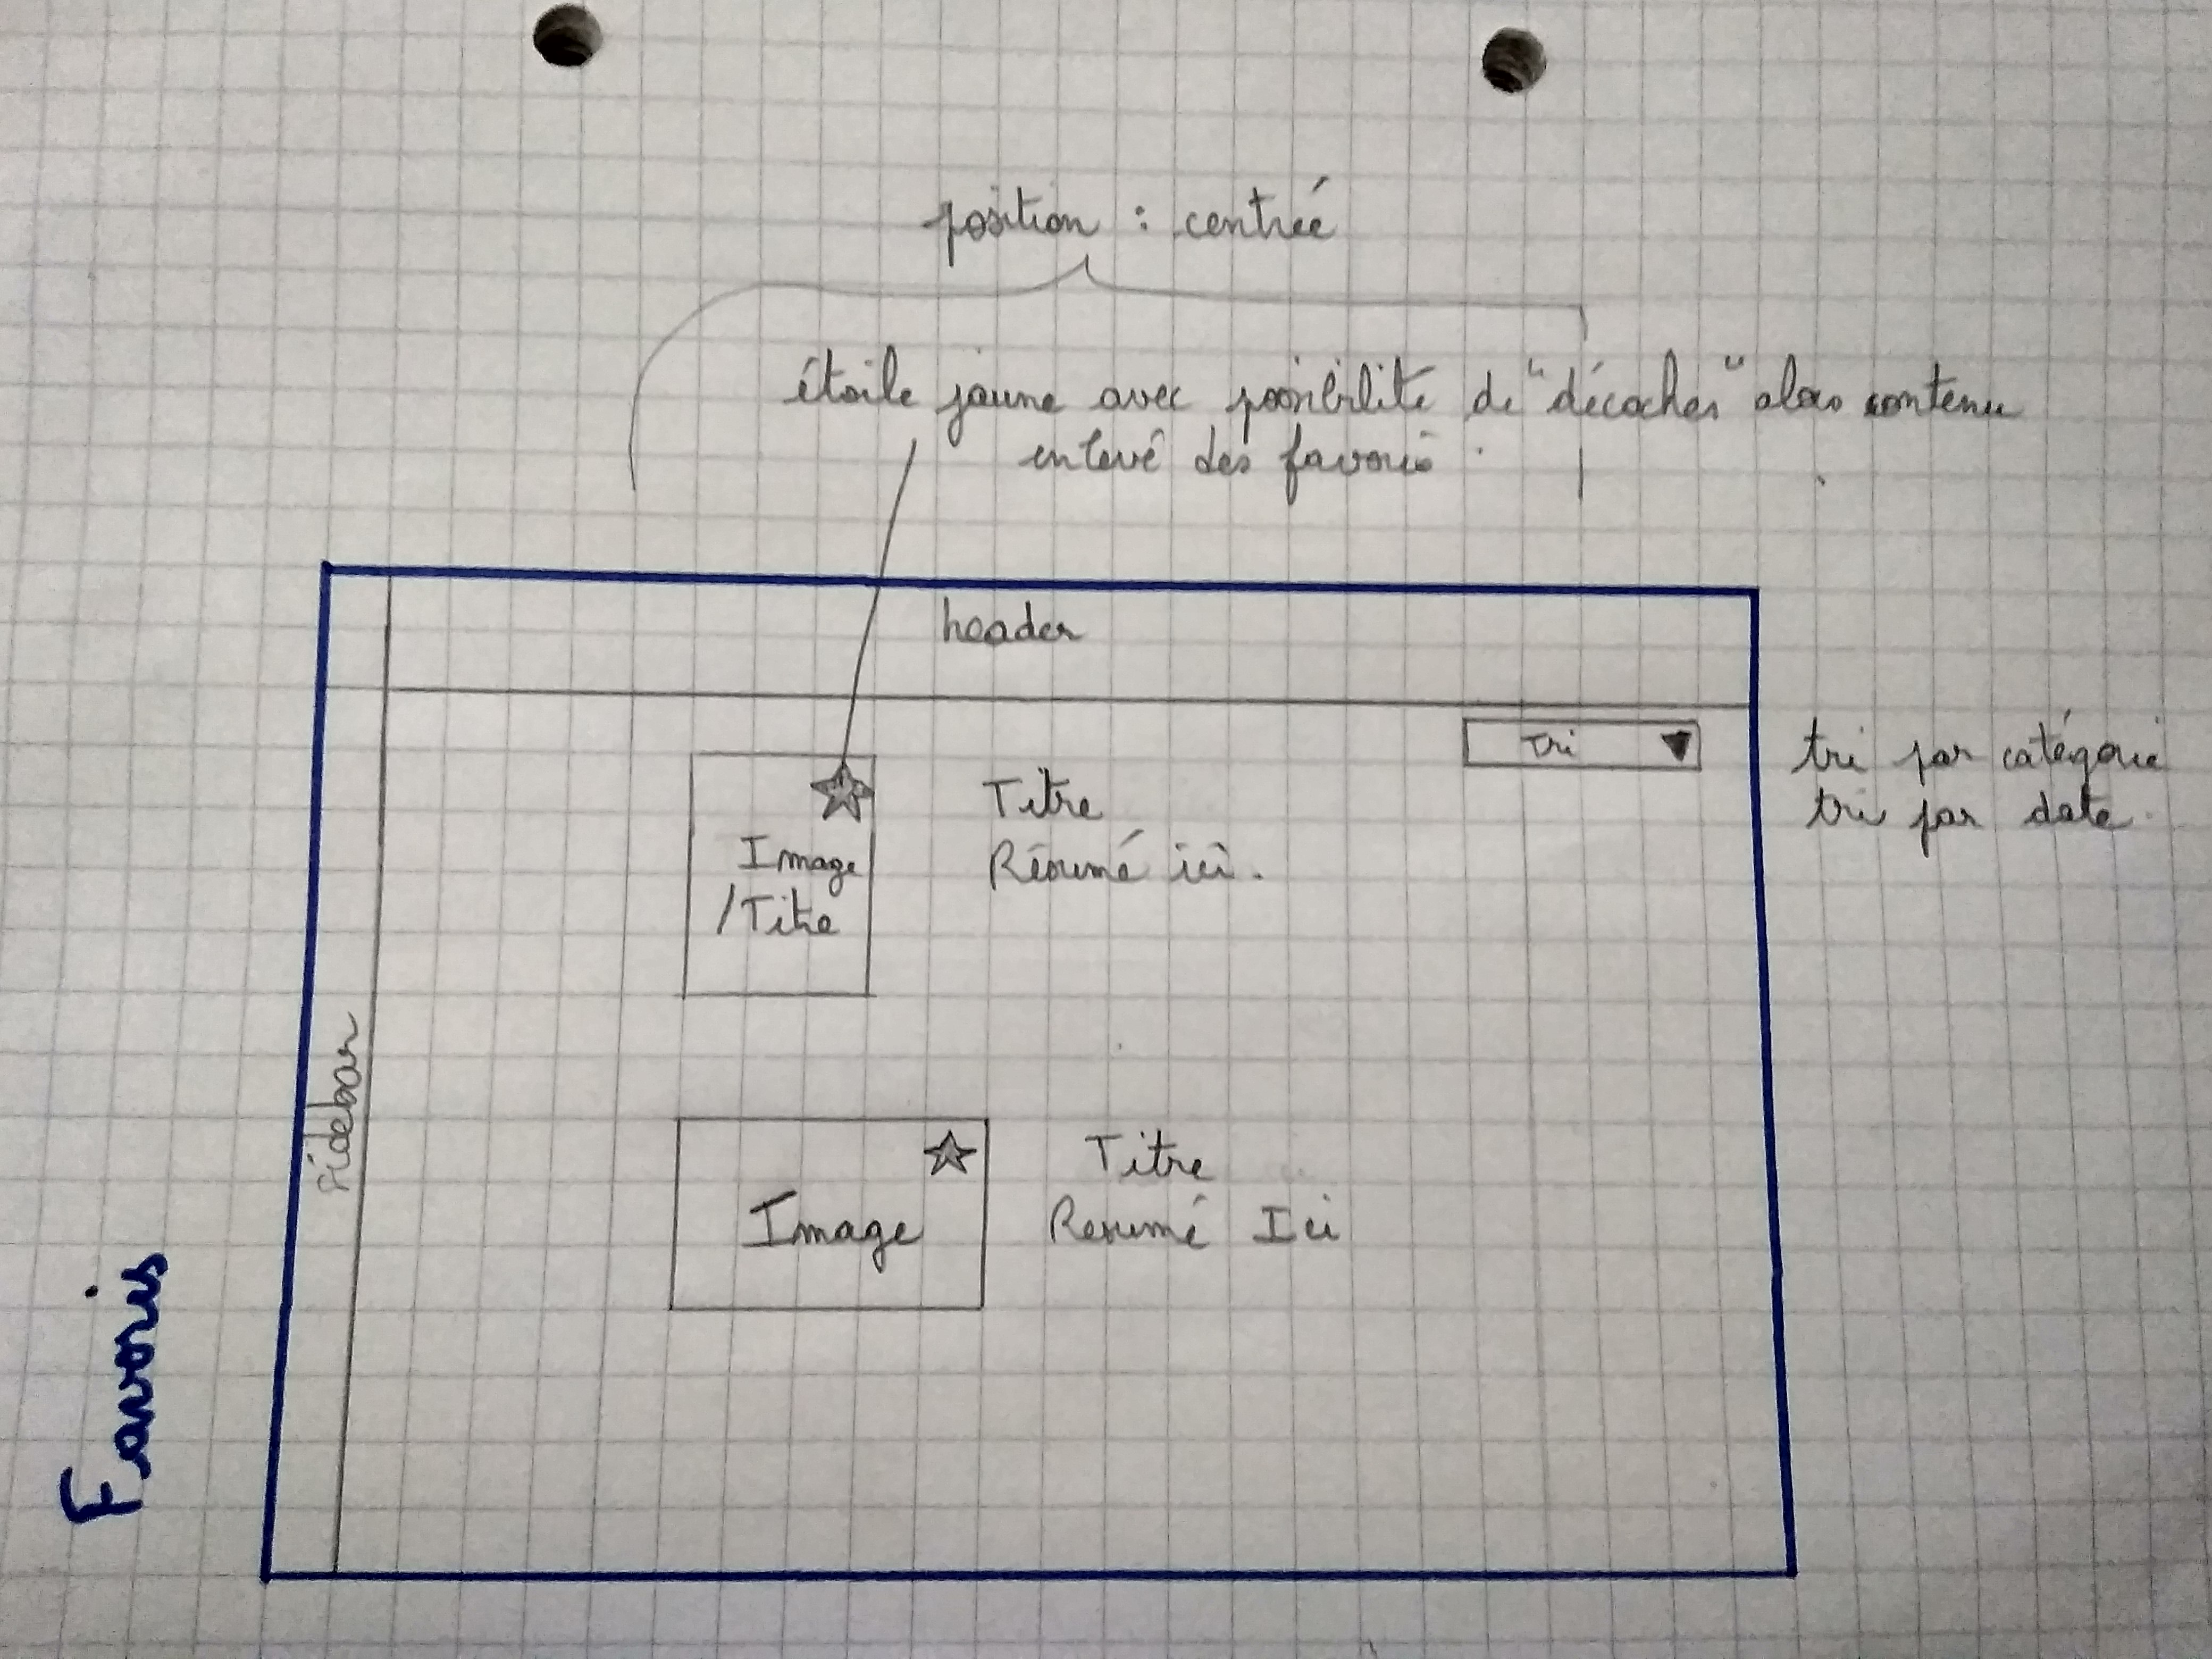 position : centrée
étoile jaune avec possibilité de "décocher" alors contenu
enlevé des favoris.
header
Tri
tri par catégorie
tri par date.
Titre
Résumé ici.
Image
/Titre
sidebar
Titre
Resumé Ici
Image
Favoris